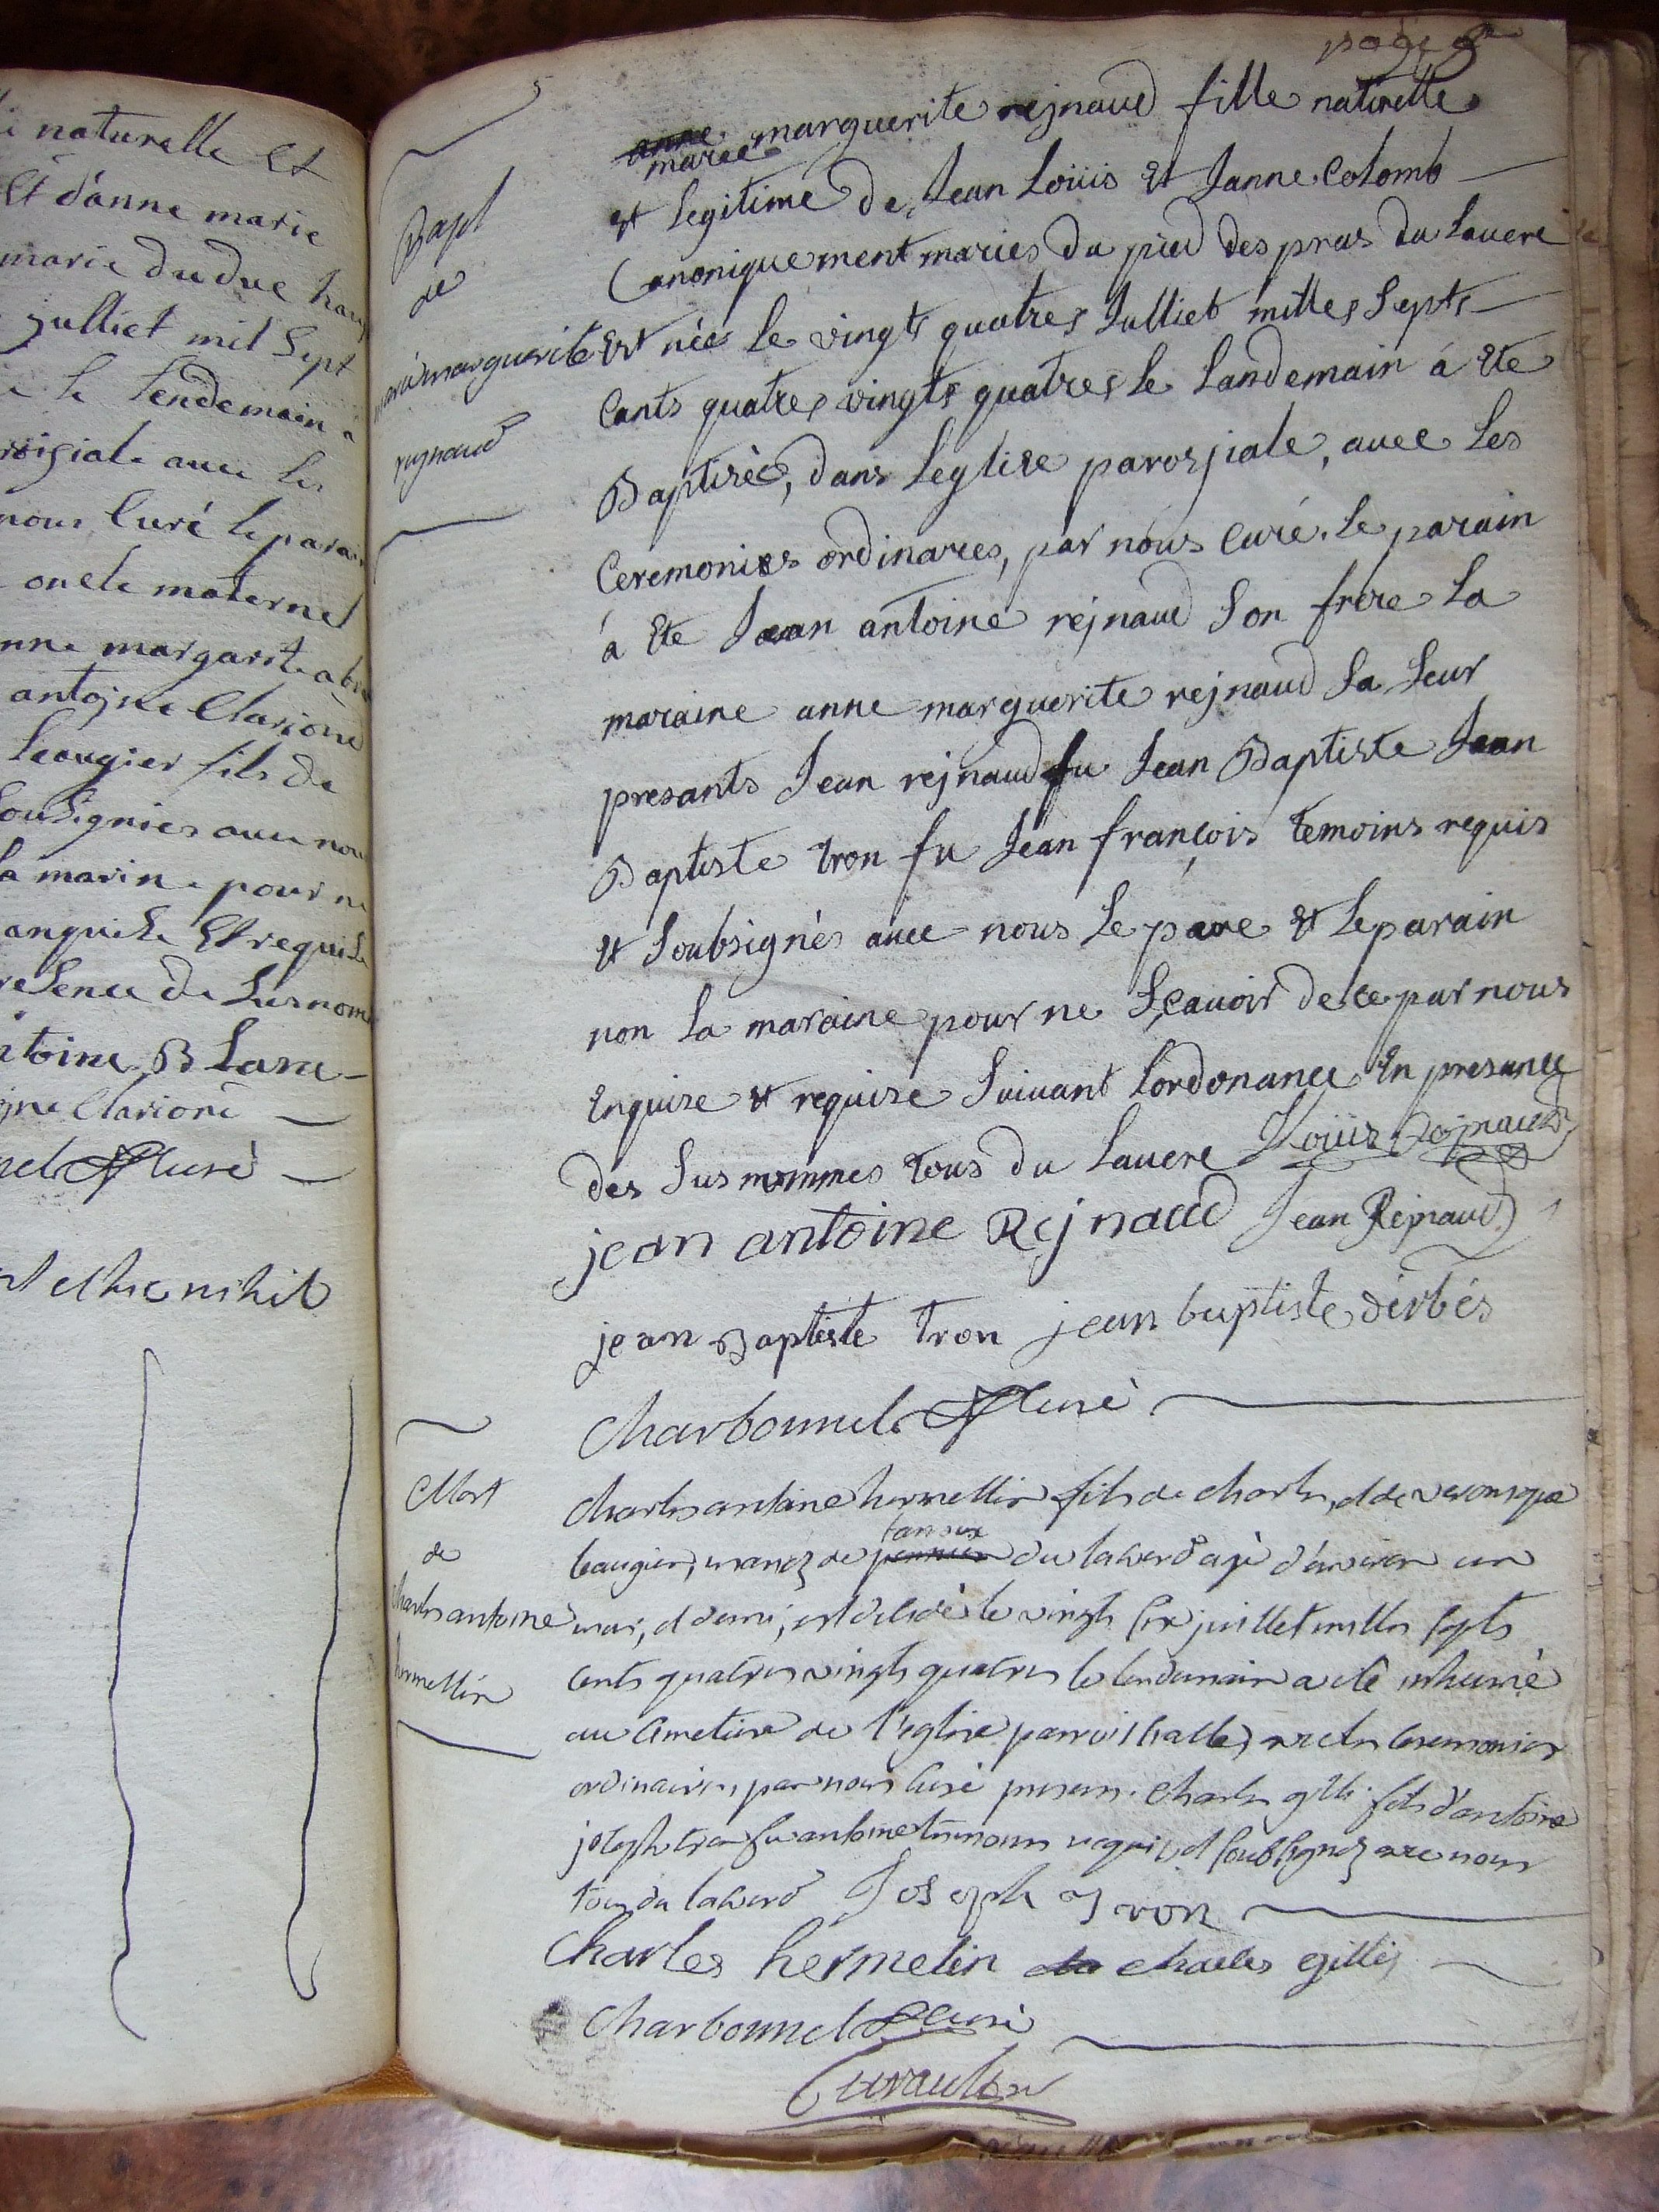 naturelle Et
Et d'anne marie
marie du duc
julliet mil Sept
le Lendemain a
avec les
nous Curé le parai
oncle maternel
margarite
antojne Clarione
Leaugier fils de
Sousignies avec nou
la marine pour ne
Et requise
de susnom
antoine Blanc
Clarione
Curè
nihil
page 5
5
Bapt
de
marie marguerite
rejnaud
anne marguerite rejnaud fille naturelle
marie
et Legitime de Jean Loüis Et Janne Colomb
Canoniquement maries du pied des pras du Lauere
Est nèe Le vingts quatres Julliet milles Septs
Cents quatres vingts quatres Le Landemain á Ete
Baptisèe, dans Leglise parossiale, avec Les
Ceremonies ordinares, par nous Curé. Le parain
á Ete Jean antoine rejnaud Son frere La
maraine anne marguerite rejnaud Sa Seur
presants Jean rejnaud fu Jean Baptiste Jean
Baptiste tron fu Jean françois temoins requis
et Soubsignès avec nous Le pere et Le parain
non La maraine pour ne Sçauoir de ce par nous
Enquise et requise Suivant Lordonance En presance
des Susnommes tous du Lauere Loüis Rejnaud
jean antoine Rejnaud Jean Rejnaud
jean Baptiste tron jean baptiste dérbés
Charbonnel Curè
Mort
de
Charles antoine
hermellin
Charles antoine hermellin fils de Charles, et de veronique
leaugier, mariez de du laverd agè d'environ un
mois, et demi, est decedè le vingts six juillet milles septs
Cents quatres vingts quatres le lendemain a etè inhumè
au Cimetiere de l'eglise parroissialle, avec les Ceremonies
ordinaires, par nous Curè presens. Charles gilli fils d'antoine
joseph tron fu antoine temoins requis, et soubsignez avec nous
tous du laverd Joseph Tron
Charles hermelin Charles gillis
Charbonnel Curè